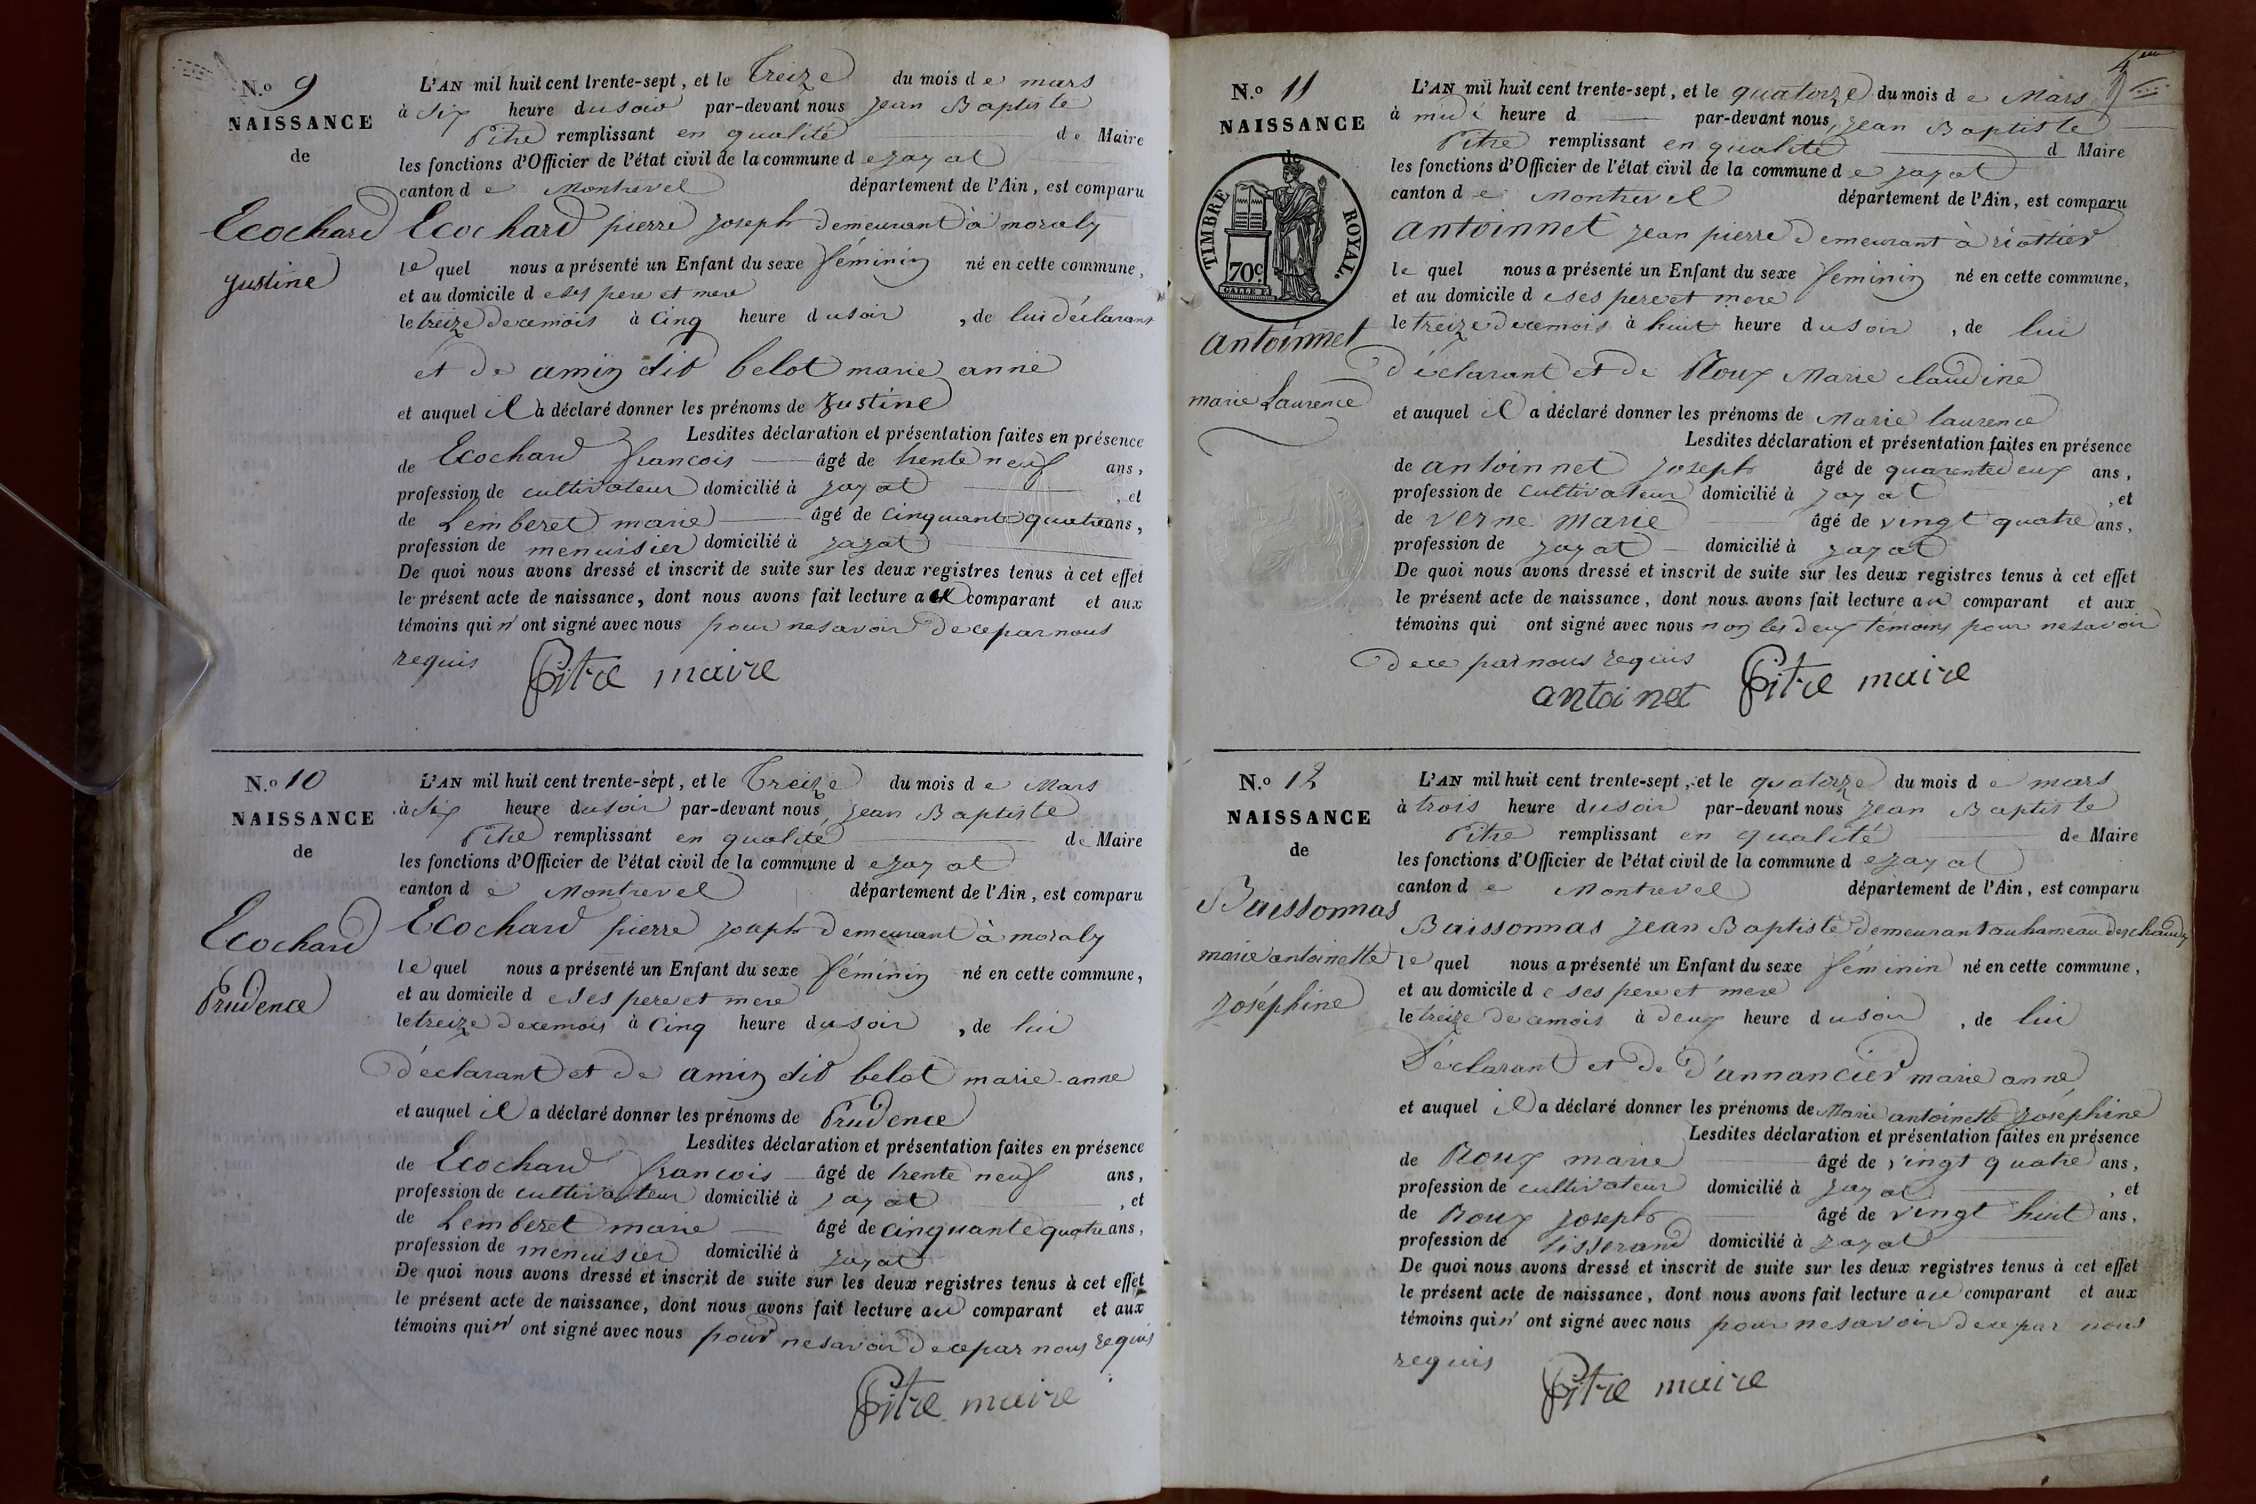 N.o 9
NAISSANCE
de
Ecochard
justine
L'AN mil huit cent trente-sept, et le treize du mois de mars
à six heure du soir par-devant nous jean Baptiste
Pitre remplissant en qualité de Maire
les fonctions d'Officier de l'état civil de la commune de jayat
canton de Montrevel département de l'Ain, est comparu
Ecochard pierre joseph demeurant à moraly
lequel nous a présenté un Enfant du sexe féminin né en cette commune,
et au domicile de ses pere et mere
le treize de ce mois à cinq heure du soir, de lui déclarant
et de amin dit belot marie anne
et auquel il a déclaré donner les prénoms de justine
Lesdites déclaration et présentation faites en présence
de Ecochard francois âgé de trente neuf ans,
profession de cultivateur domicilié à jayat, et
de Lemberet marie âgé de cinquante quatre ans,
profession de menuisier domicilié à jayat
De quoi nous avons dressé et inscrit de suite sur les deux registres tenus à cet effet
le présent acte de naissance, dont nous avons fait lecture au comparant et aux
témoins qui n'ont signé avec nous pour ne savoir de ce par nous
requis Pitre maire
N.o 10
NAISSANCE
de
Ecochard
Prudence
L'AN mil huit cent trente-sept, et le treize du mois de Mars
à six heure du soir par-devant nous jean Baptiste
Pitre remplissant en qualité de Maire
les fonctions d'Officier de l'état civil de la commune de jayat
canton de Montrevel département de l'Ain, est comparu
Ecochard pierre joseph demeurant à moraly
lequel nous a présenté un Enfant du sexe féminin né en cette commune,
et au domicile de ses pere et mere
le treize de ce mois à cinq heure du soir, de lui
déclarant et de amin dit belot marie anne
et auquel il a déclaré donner les prénoms de Prudence
Lesdites déclaration et présentation faites en présence
de Ecochard francois âgé de trente neuf ans,
profession de cultivateur domicilié à jayat, et
de Lemberet marie âgé de cinquante quatre ans,
profession de menuisier domicilié à jayat
De quoi nous avons dressé et inscrit de suite sur les deux registres tenus à cet effet
le présent acte de naissance, dont nous avons fait lecture au comparant et aux
témoins qui n'ont signé avec nous pour ne savoir de ce par nous requis
Pitre maire
N.o 11
NAISSANCE
de
TIMBRE ROYAL.
70c.
antoinnet
marie Laurence
L'AN mil huit cent trente-sept, et le quatorze du mois de Mars
à midi heure d par-devant nous, jean Baptiste
Pitre remplissant en qualité d Maire
les fonctions d'Officier de l'état civil de la commune de jayat
canton de Montrevel département de l'Ain, est comparu
antoinnet jean pierre demeurant à riottier
lequel nous a présenté un Enfant du sexe féminin né en cette commune,
et au domicile de ses pere et mere
le treize de ce mois à huit heure du soir, de lui
déclarant et de Roux Marie claudine
et auquel il a déclaré donner les prénoms de Marie laurence
Lesdites déclaration et présentation faites en présence
de antoinnet joseph âgé de quarente deux ans,
profession de cultivateur domicilié à jayat, et
de verne marie âgé de vingt quatre ans,
profession de jayat domicilié à jayat
De quoi nous avons dressé et inscrit de suite sur les deux registres tenus à cet effet
le présent acte de naissance, dont nous avons fait lecture au comparant et aux
témoins qui ont signé avec nous non les deux témoins pour ne savoir
de ce par nous requis Pitre maire
antoinet
N.o 12
NAISSANCE
de
Baissonnas
marie antoinette
joséphine
L'AN mil huit cent trente-sept, et le quatorze du mois de mars
à trois heure du soir par-devant nous jean Baptiste
Pitre remplissant en qualité de Maire
les fonctions d'Officier de l'état civil de la commune de jayat
canton de Montrevel département de l'Ain, est comparu
Baissonnas jean Baptiste demeurant au hameau des
lequel nous a présenté un Enfant du sexe féminin né en cette commune,
et au domicile de ses pere et mere
le treize de ce mois à deux heure du soir, de lui
Déclarant et de d'annancier marie anne
et auquel il a déclaré donner les prénoms de Marie antoinette joséphine
Lesdites déclaration et présentation faites en présence
de Roux marie âgé de vingt quatre ans,
profession de cultivateur domicilié à jayat, et
de Roux joseph âgé de vingt huit ans,
profession de tisserand domicilié à jayat
De quoi nous avons dressé et inscrit de suite sur les deux registres tenus à cet effet
le présent acte de naissance, dont nous avons fait lecture au comparant et aux
témoins qui n'ont signé avec nous pour ne savoir de ce par nous
requis
Pitre maire